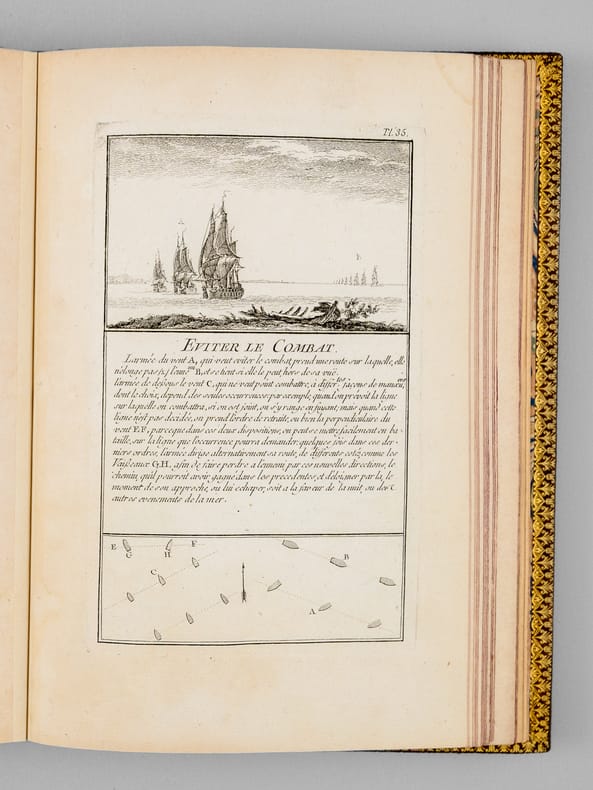 Pl. 35.
EVITER LE COMBAT.
L'armée du vent A, qui veut eviter le combat, prend une route sur laquelle, elle
n'élonge pas l'enne.my B, et se tient si elle le peut hors de sa vuë.
l'armée de dessous le vent C, qui ne veut point combattre, à différ.tes façons de manœu.vres
dont le choix, depend des seules occurrences, par exemple, quand on prevoit la ligne
sur laquelle on combattra, et on est joint, on s'y range en fuyant, mais quand cette
ligne n'est pas decidée, on prend l'ordre de retraite, ou bien la perpendiculaire du
vent EF, parceque dans ces deux dispositions, on peut se mettre facilement en ba-
taille, sur la ligne que l'occurrence pourra demander, quelques fois dans ces der-
niers ordres, l'armée dirige alternativement sa route, de differents cotéz comme les
Vaisseaux G,H, afin de faire perdre a l'ennemi par ces nouvelles directions, le
chemin, qu'il pourroit avoir gagné dans les precedentes, et d'éloigner par là, le
moment de son approche, ou lui echaper, soit a la faveur de la nuit, ou des
autres evenements de la mer.
E G H F
C B
A